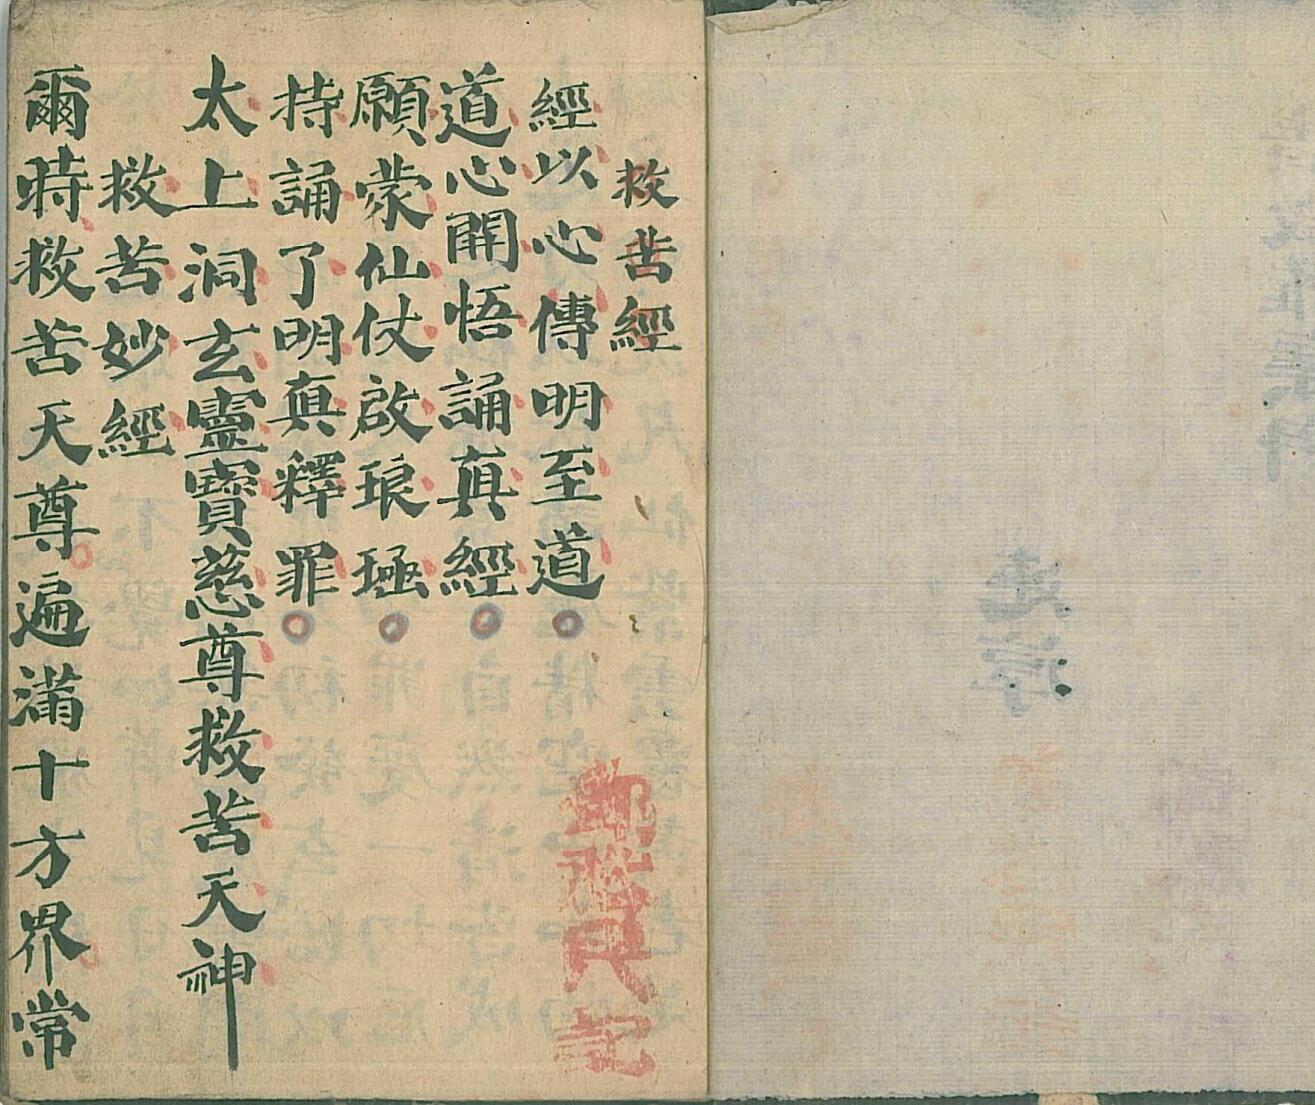 救苦經
經以心傳明至道
道心開悟誦真經
願蒙仙仗啟琅凾
持誦了明真釋罪
太上洞玄靈寶慈尊救苦天神
救苦妙經
爾時救苦天尊遍滿十方界常
記